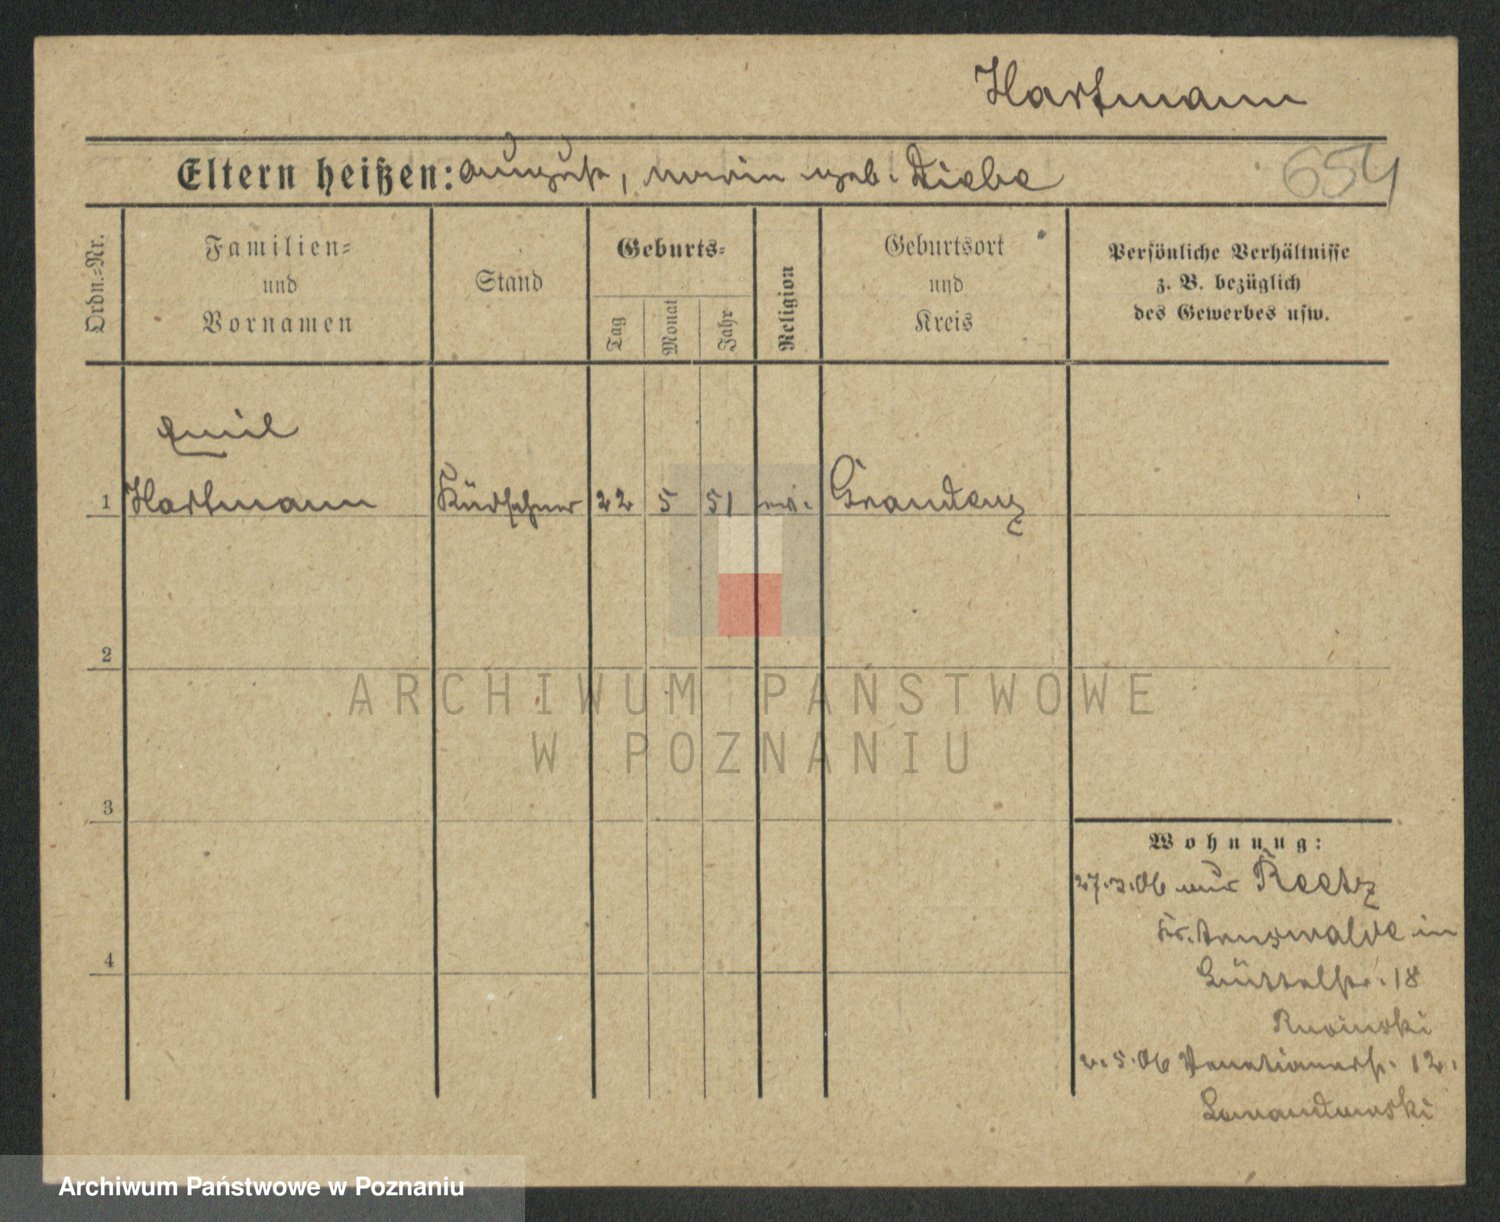 Hartmann
Eltern heißen: August, Marie geb. Diebe
654
Ordn.-Nr.
Familien-
und
Vornamen
Stand
Geburts-
Tag
Monat
Jahr
Religion
Geburtsort
und
Kreis
Persönliche Verhältnisse
z. B. bezüglich
des Gewerbes usw.
Emil
1 Hartmann Kürschner 22 5 51 Graudenz
2
ARCHIWUM PAŃSTWOWE
W POZNANIU
3
Wohnung:
27.3.06 aus Reetz
Kr. Arnswalde in
Büttelstr. 18
Rusinski
2.5.06 Venetianerstr. 12.
Lewandowski
4
Archiwum Państwowe w Poznaniu